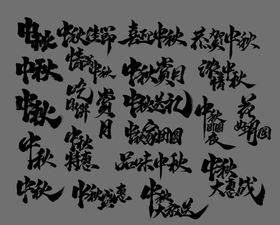 中秋
中秋佳节
喜迎中秋
恭贺中秋
中秋
情意中秋
中秋赏月
浓情中秋
中秋
吃月饼
赏月
中秋送礼
中秋团圆夜
花好月圆
中秋
中秋特惠
阖家团圆
品味中秋
中秋
中秋盛惠
中秋大放送
中秋大惠战